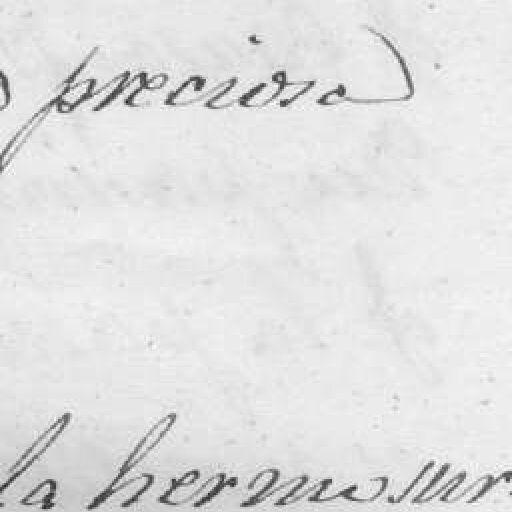 preciosa
la hermosur